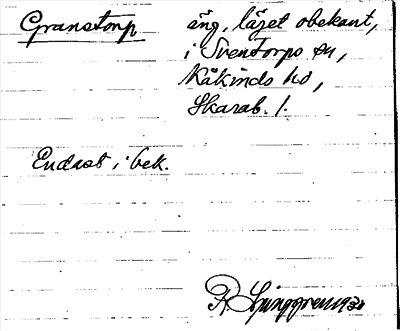 Granstorp äng, läget obekant,
i Sventorps sn,
Kåkinds hd,
Skarab. l.
Endast i bek.
R Ljunggren 1931